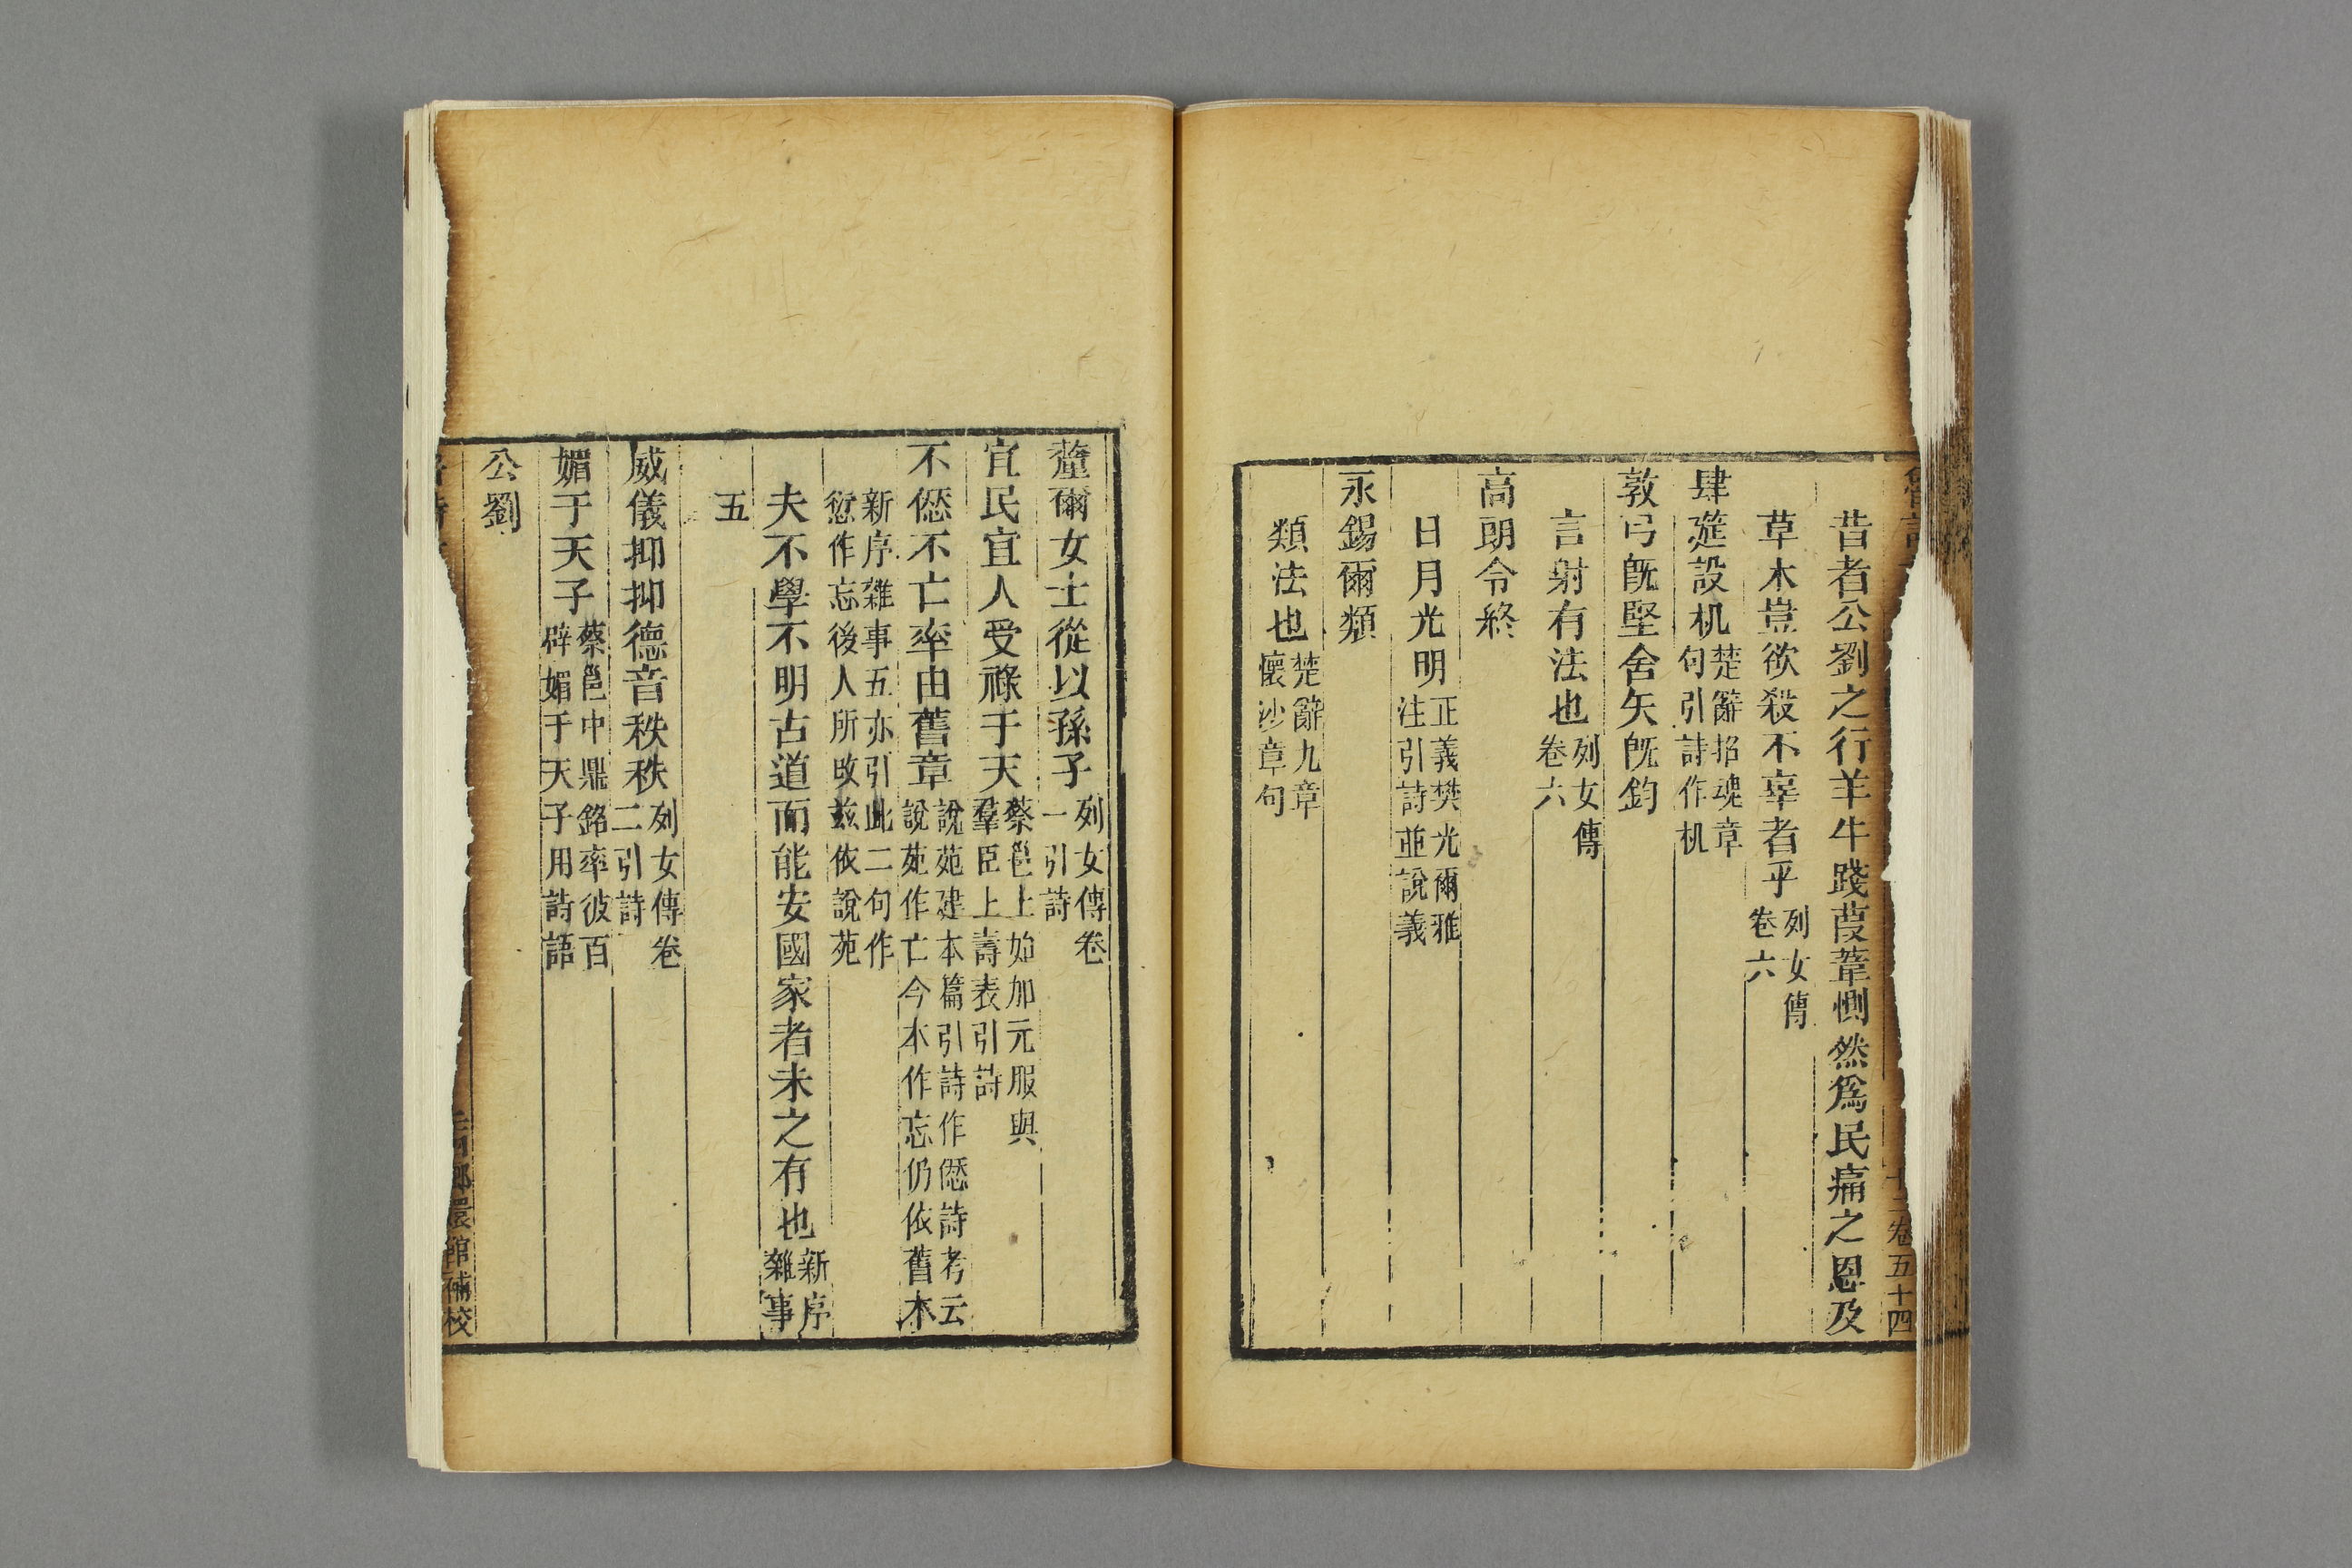 十三卷五十四
昔者公劉之行羊牛踐葭葦惻然爲民痛之恩及
草木豈欲殺不辜者乎列女傳
卷六
肆筵設机楚辭招魂章
句引詩作机
敦弓旣堅舍矢旣鈞
言射有法也列女傳
卷六
高朗令終
日月光明正義樊光爾雅
注引詩並說義
永錫爾類
類法也楚辭九章
懷沙章句
釐爾女士從以孫子列女傳卷
一引詩
宜民宜人受祿于天蔡邕上始加元服與
羣臣上壽表引詩
不愆不亡率由舊章說苑建本篇引詩作愆詩考云
說苑作亡今本作忘仍依舊本
新序雜事五亦引此二句作
愆作忘後人所改兹依說苑
夫不學不明古道而能安國家者未之有也新序
雜事
五
威儀抑抑德音秩秩列女傳卷
二引詩
媚于天子蔡邕中鼎銘率彼百
辟媚于天子用詩語
公劉
郎嬛館補校